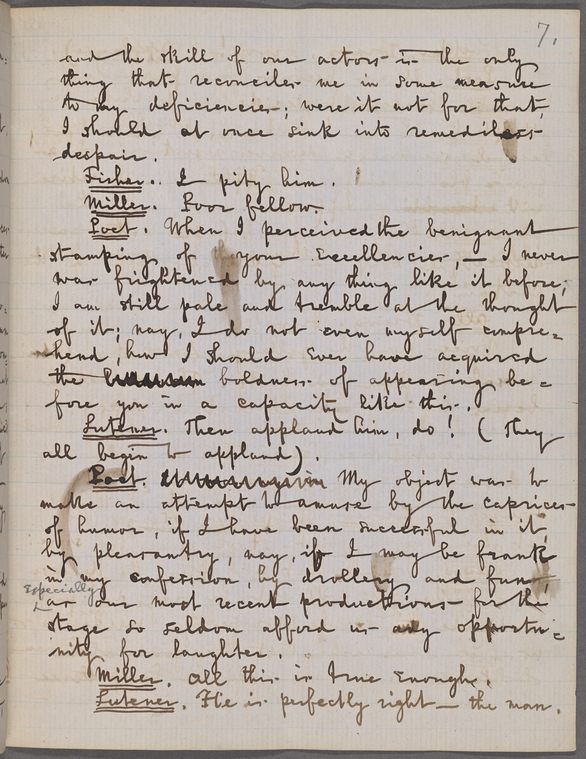 7.
and the skill of our actors is the only
thing that reconciles me in some measure
to my deficiencies; were it not for that,
I should at once sink into remediless
despair.
Fisher. I pity him.
Miller. Poor fellow.
Poet. When I perceived the benignant
stamping of your Excellencies, — I never
was frightened by any thing like it before;
I am still pale and tremble at the thought
of it; nay, I do not even myself compre=
hend, how I should ever have acquired
the boldness of appearing be=
fore you in a capacity like this.
Leutener. Then applaud him, do! (They
all begin to applaud).
Poet. My object was to
make an attempt to amuse by the caprices
of humor, if I have been successful in it,
by pleasantry, nay, if I may be frank
in my confession, by drollery and fun
Especially
as our most recent productions for the
stage so seldom afford us any opportu=
nity for laughter.
Miller. All this is true enough.
Leutener. He is perfectly right — the man.